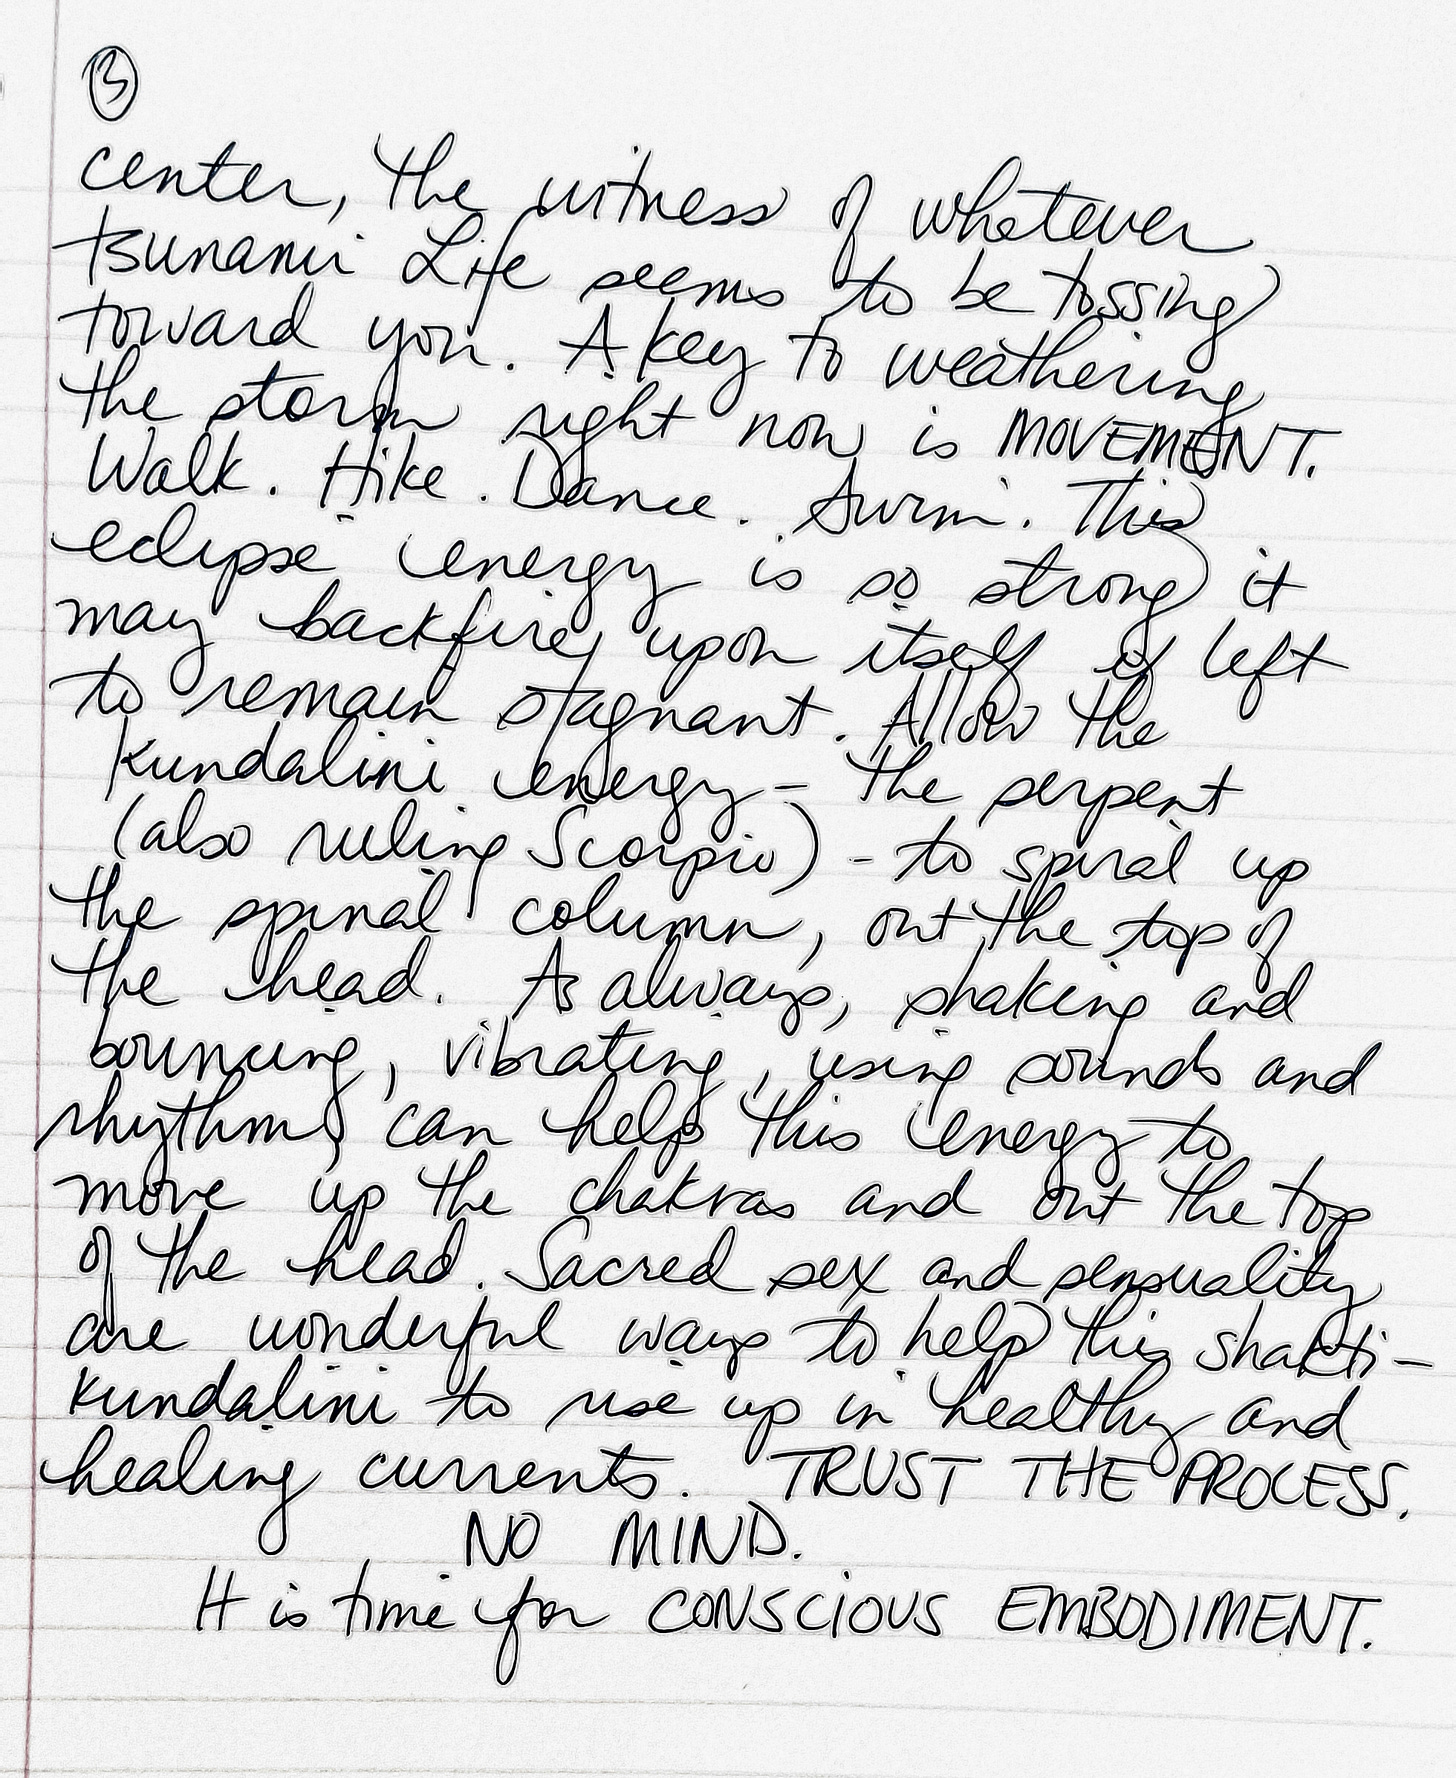 3
center, the witness of whatever
tsunami Life seems to be tossing
toward you. A key to weathering
the storm right now is MOVEMENT.
Walk. Hike. Dance. Swim. This
eclipse energy is so strong it
may backfire upon itself if left
to remain stagnant. Allow the
Kundalini energy - the serpent
(also ruling Scorpio) - to spiral up
the spinal column, out the top of
the head. As always, shaking and
bouncing, vibrating, using sounds and
rhythms can help this energy to
move up the chakras and out the top
of the head. Sacred sex and sensuality
are wonderful ways to help this shakti-
Kundalini to rise up in healthy and
healing currents. TRUST THE PROCESS.
NO MIND.
It is time for CONSCIOUS EMBODIMENT.